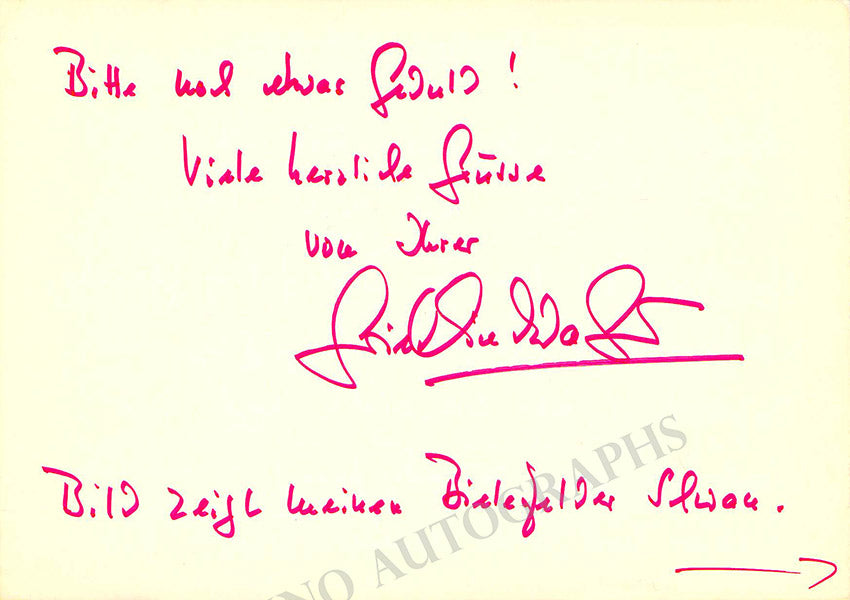 Bitte noch etwas Geduld!
Viele herzliche Grüsse
von Ihrer
Friedelind Wagner
Bild zeigt meinen Bielefelder Schwan.
NO AUTOGRAPHS